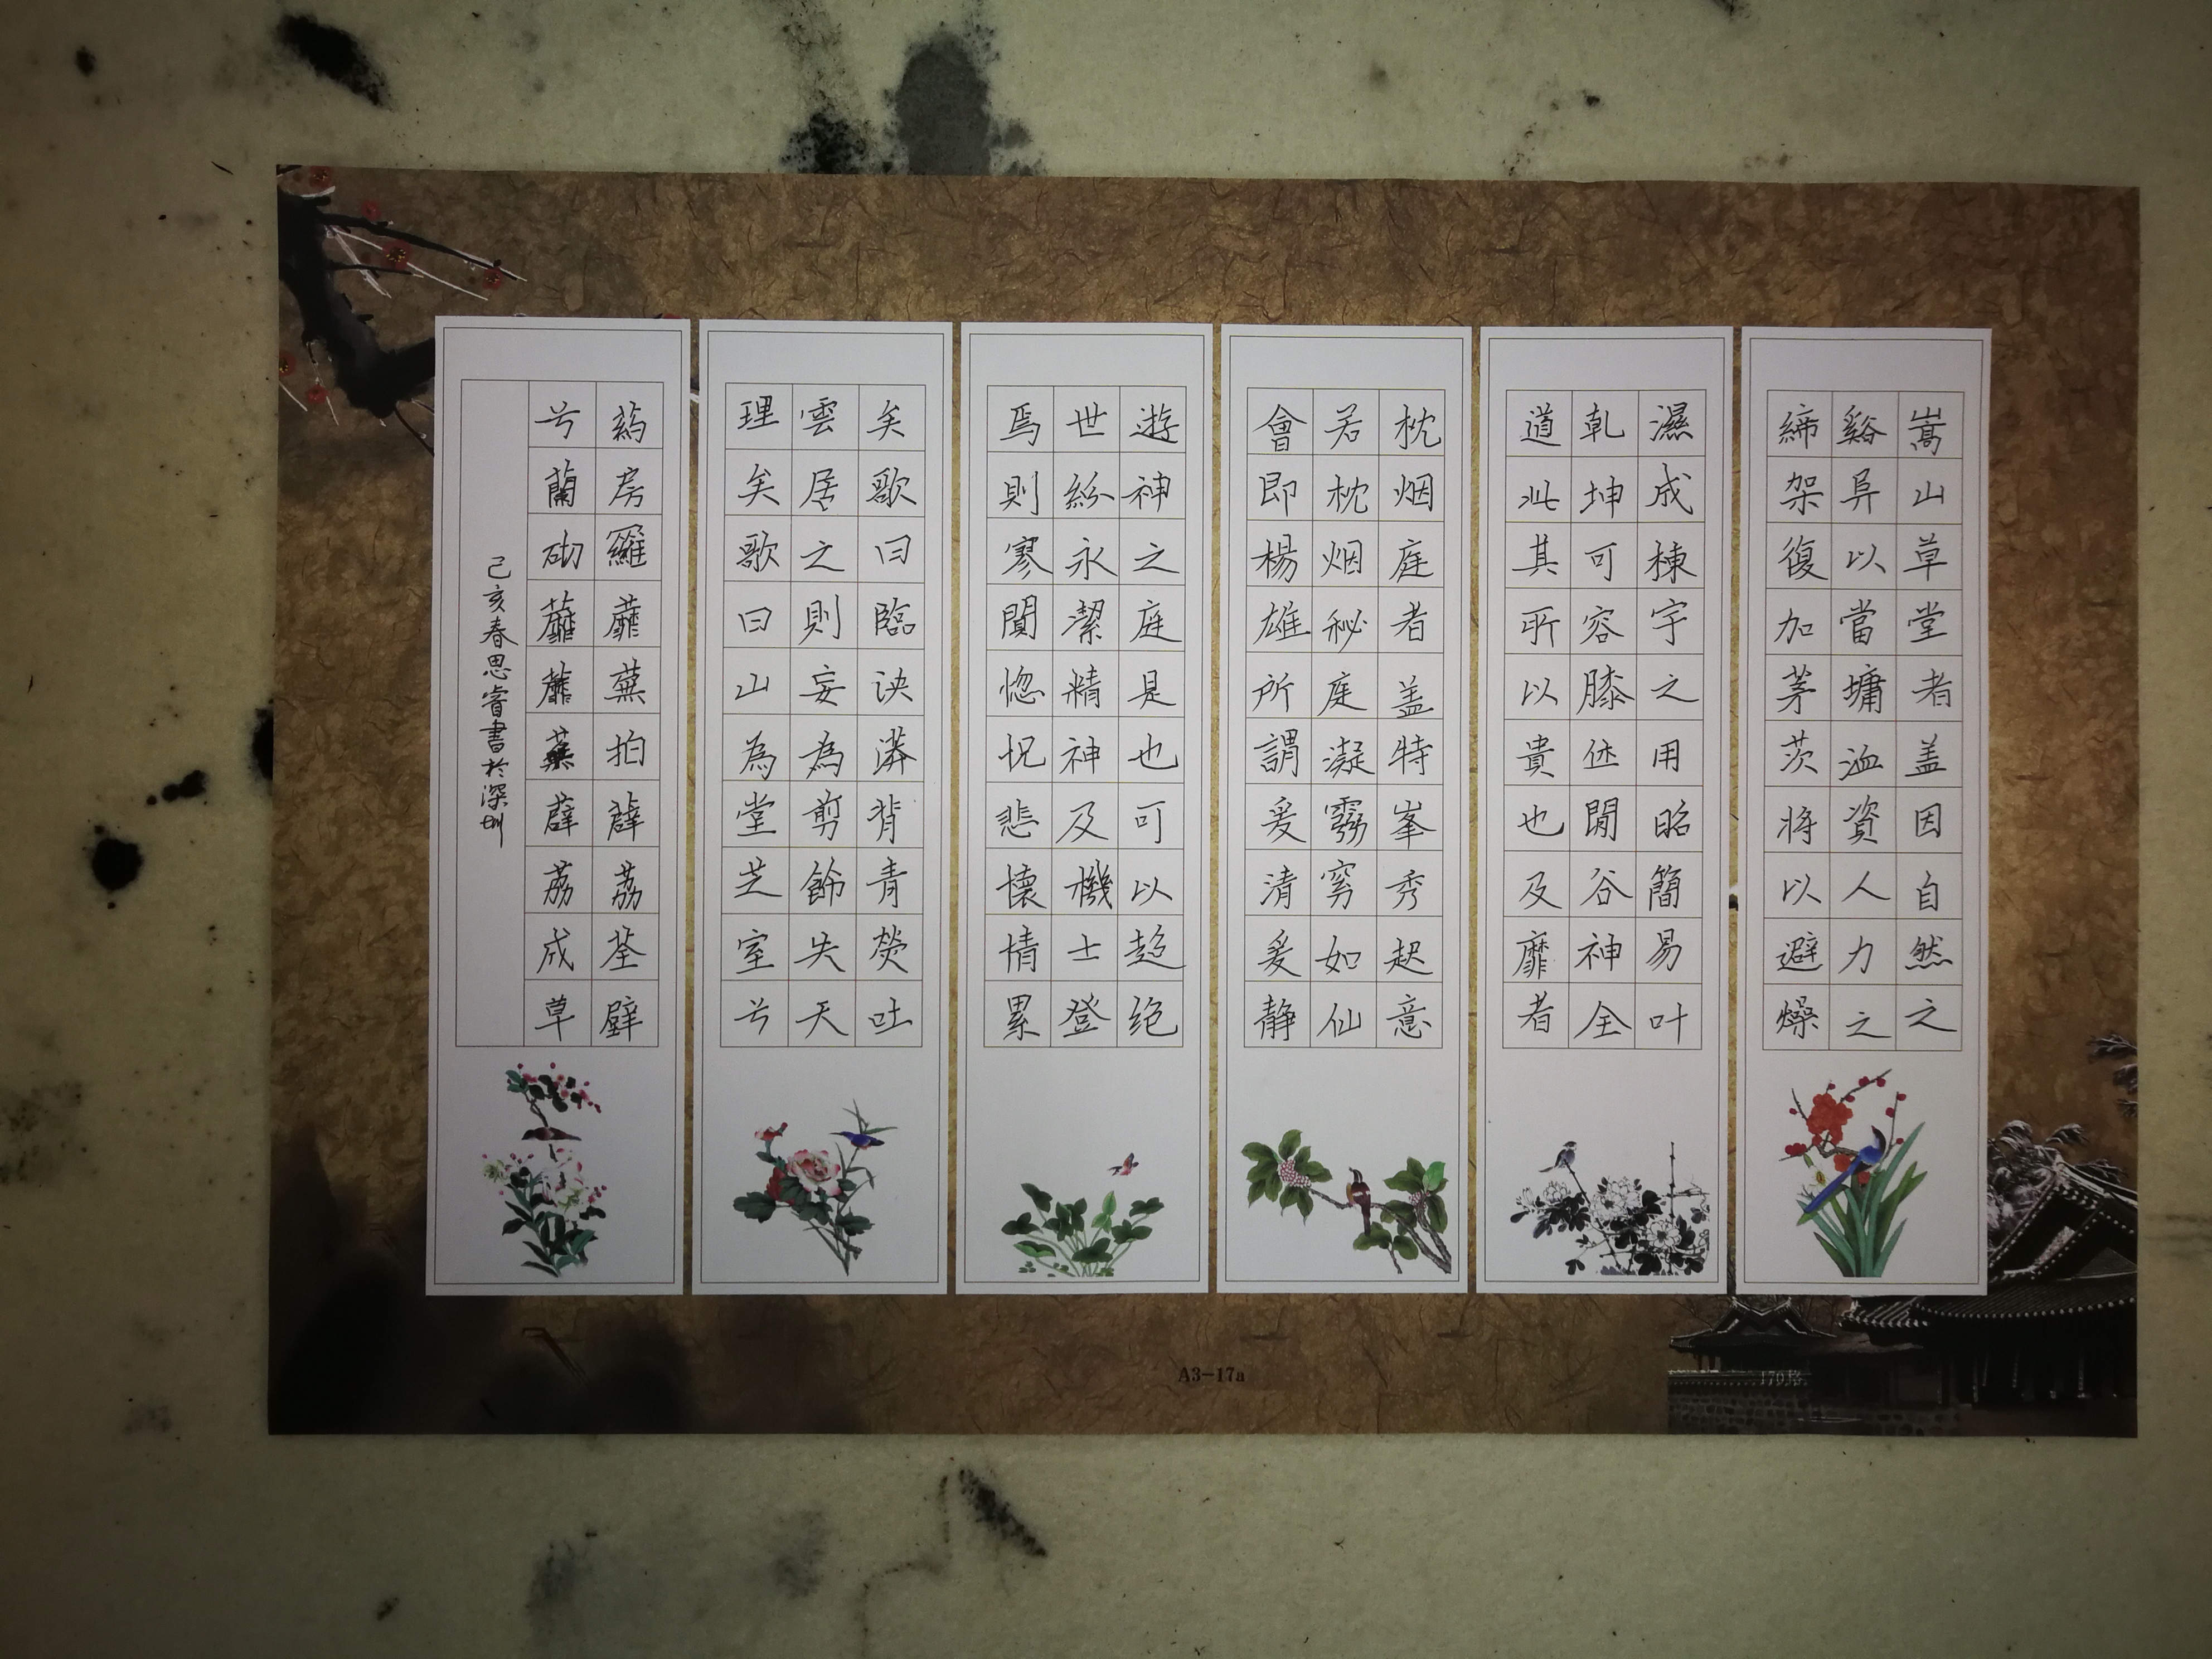 嵩山草堂者盖因自然之
谿阜以當墉洫資人力之
締架復加茅茨將以避燥
濕成棟宇之用昭簡易叶
乾坤可容膝休閒谷神全
道此其所以貴也及靡者
枕烟庭者盖特峯秀起意
若枕烟秘庭凝霧窅如仙
會即楊雄所謂爰清爰静
遊神之庭是也可以超绝
世紛永潔精神及機士登
焉則寥闃惚怳悲懷情累
矣歌曰臨泱漭背青熒吐
雲居之則妄為剪飾失天
理矣歌曰山為堂芝室兮
葯房羅蘼蕪拍薜荔荃壁
兮蘭砌蘼蘼蕪薜荔成草
己亥春思睿書於深圳
A3-17a
170格